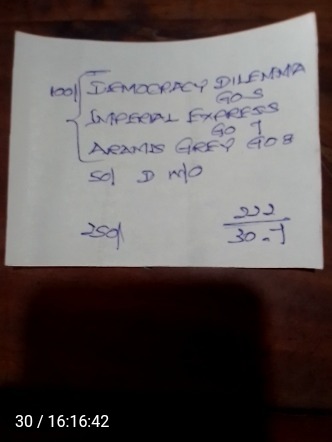 100/ DEMOCRACY DILEMMA
GO 5
IMPERIAL EXPRESS
GO 7
ARAMIS GREY GO 8
50/ D N/O
250/
222
30-7
30 / 16:16:42